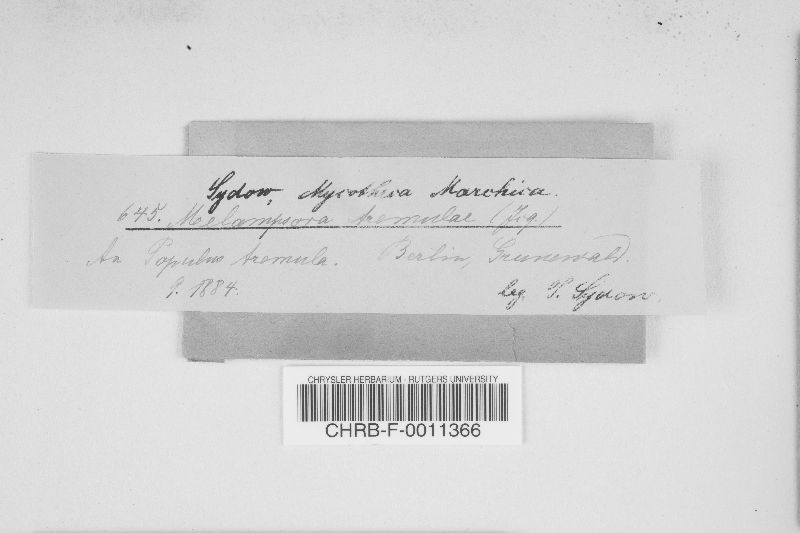 Sydow, Mycotheca Marchica.
645. Melampsora tremulae
An Populus tremula. Berlin, Grunewald.
9. 1884. leg. P. Sydow.
CHRYSLER HERBARIUM - RUTGERS UNIVERSITY
CHRB-F-0011366